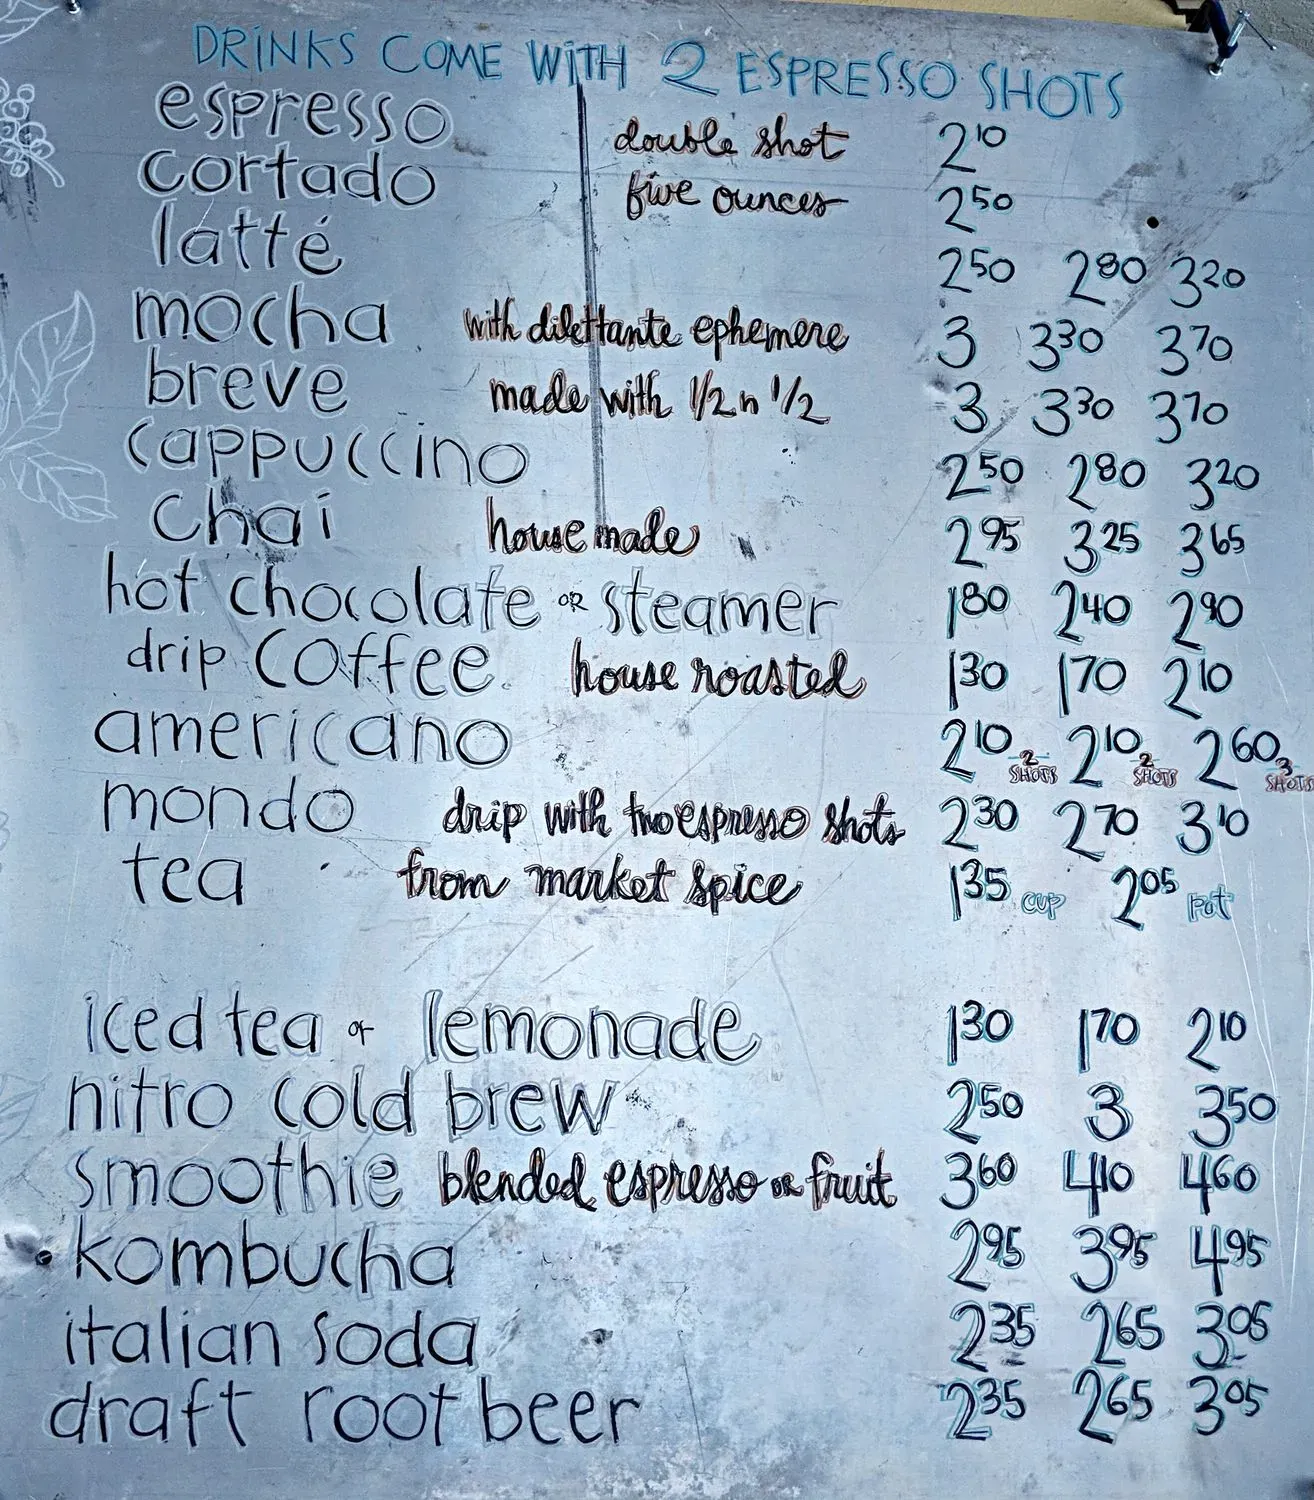 DRINKS COME WITH 2 ESPRESSO SHOTS
espresso double shot 2¹⁰
cortado five ounces 2⁵⁰
latté 2⁵⁰ 2⁸⁰ 3²⁰
mocha with dilettante ephemere 3 3³⁰ 3⁷⁰
breve made with 1/2 n 1/2 3 3³⁰ 3⁷⁰
cappuccino 2⁵⁰ 2⁸⁰ 3²⁰
chai house made 2⁹⁵ 3²⁵ 3⁶⁵
hot chocolate OR steamer 1⁸⁰ 2⁴⁰ 2⁹⁰
drip coffee house roasted 1³⁰ 1⁷⁰ 2¹⁰
americano 2¹⁰ 2 SHOTS 2¹⁰ 2 SHOTS 2⁶⁰ 3 SHOTS
mondo drip with two espresso shots 2³⁰ 2⁷⁰ 3¹⁰
tea from market spice 1³⁵ cup 2⁰⁵ pot
iced tea or lemonade 1³⁰ 1⁷⁰ 2¹⁰
nitro cold brew 2⁵⁰ 3 3⁵⁰
smoothie blended espresso OR fruit 3⁶⁰ 4¹⁰ 4⁶⁰
kombucha 2⁹⁵ 3⁹⁵ 4⁹⁵
italian soda 2³⁵ 2⁶⁵ 3⁰⁵
draft root beer 2³⁵ 2⁶⁵ 3⁰⁵